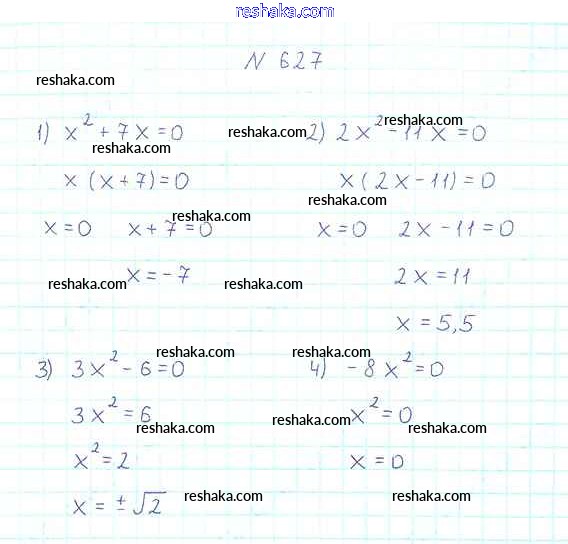 reshaka.com
N 627
reshaka.com
1) x² + 7x = 0 reshaka.com 2) 2x² - 11x = 0 reshaka.com
reshaka.com
x (x + 7) = 0 x (2x - 11) = 0
reshaka.com
reshaka.com
x = 0 x + 7 = 0 x = 0 2x - 11 = 0
x = -7 2x = 11
reshaka.com reshaka.com
x = 5,5
reshaka.com reshaka.com
3) 3x² - 6 = 0 4) -8x² = 0
3x² = 6 x² = 0
reshaka.com reshaka.com reshaka.com
x² = 2 x = 0
reshaka.com reshaka.com
x = ±√2